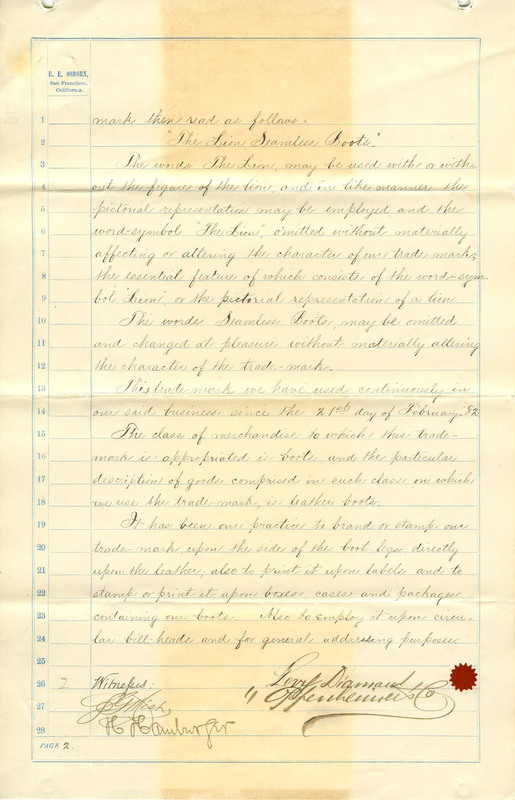 E. E. OSBORN,
San Francisco,
California.
1 mark then read as follows.
2 "The Lion Seamless Boots."
3 The words The Lion, may be used with or with-
4 out the figure of the lion, and in like manner the
5 pictorial representation may be employed and the
6 word-symbol "The Lion", omitted without materially
7 affecting or altering the character of our trade-mark,
8 the essential feature of which consists of the word-sym-
9 bol "Lion", or the pictorial representation of a lion
10 The words Seamless Boots, may be omitted
11 and changed at pleasure without materially altering
12 the character of the trade-mark.
13 This trade-mark we have used continuously in
14 our said business since the 21st day of February '82
15 The class of merchandise to which this trade-
16 mark is appropriated is boots and the particular
17 description of goods comprised in such class on which
18 we use the trade-mark, is leather boots.
19 It has been our practice to brand or stamp our
20 trade-mark upon the side of the boot legs directly
21 upon the leather, also to print it upon labels and to
22 stamp or print it upon boxes, cases and packages
23 containing our boots. Also to employ it upon circu-
24 lar bill-heads and for general addressing purposes.
25
26 2 Witnesses: Levy Diamant
27 Oppenheimer & Co
28 H Hamburger
PAGE 2.